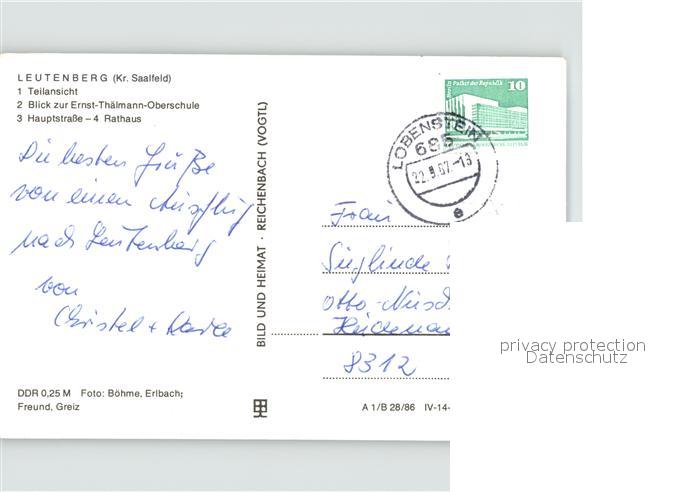 LEUTENBERG (Kr. Saalfeld)
1 Teilansicht
2 Blick zur Ernst-Thälmann-Oberschule
3 Hauptstraße – 4 Rathaus
Die besten Grüße
von einen Ausflug
nach Leutenberg
von
Christel +
DDR 0,25 M Foto: Böhme, Erlbach;
Freund, Greiz
BILD UND HEIMAT · REICHENBACH (VOGTL)
Berlin Palast der Republik 10
LOBENSTEIN
685
e
Frau
Sieglinde
Otto-
Heidenau
8312
A 1/B 28/86 IV-14-
privacy protection
Datenschutz